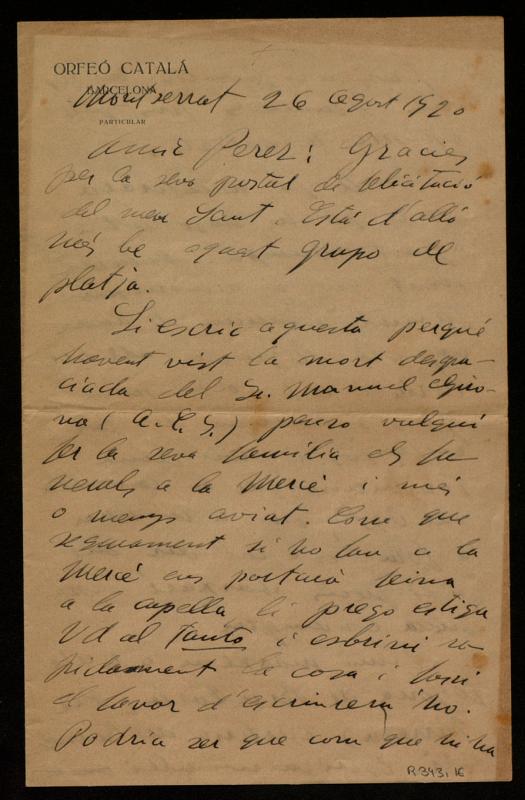 ORFEÓ CATALÁ
BARCELONA
Montserrat 26 Agost 1920
PARTICULAR
Amic Perez: Gracies
per la seva postal de felicitació
del meu Sant. Está d'alló
més be aquest grupo de
platja.
Li escric aquesta perqué
havent vist la mort desgra-
ciada del Sr. Manuel Giro-
na (a. C. S.) penso vulgui
fer la seva familia els fu
nerals a la Mercé i més
o menys aviat. Com que
segurament si ho fan a la
Mercé ens portará feina
a la capella li prego estiga
Vd al tanto i esbrini ra
pidament la cosa i fassi
el favor d'escriurem ho.
Podria ser que com que hi ha
R343, 1E